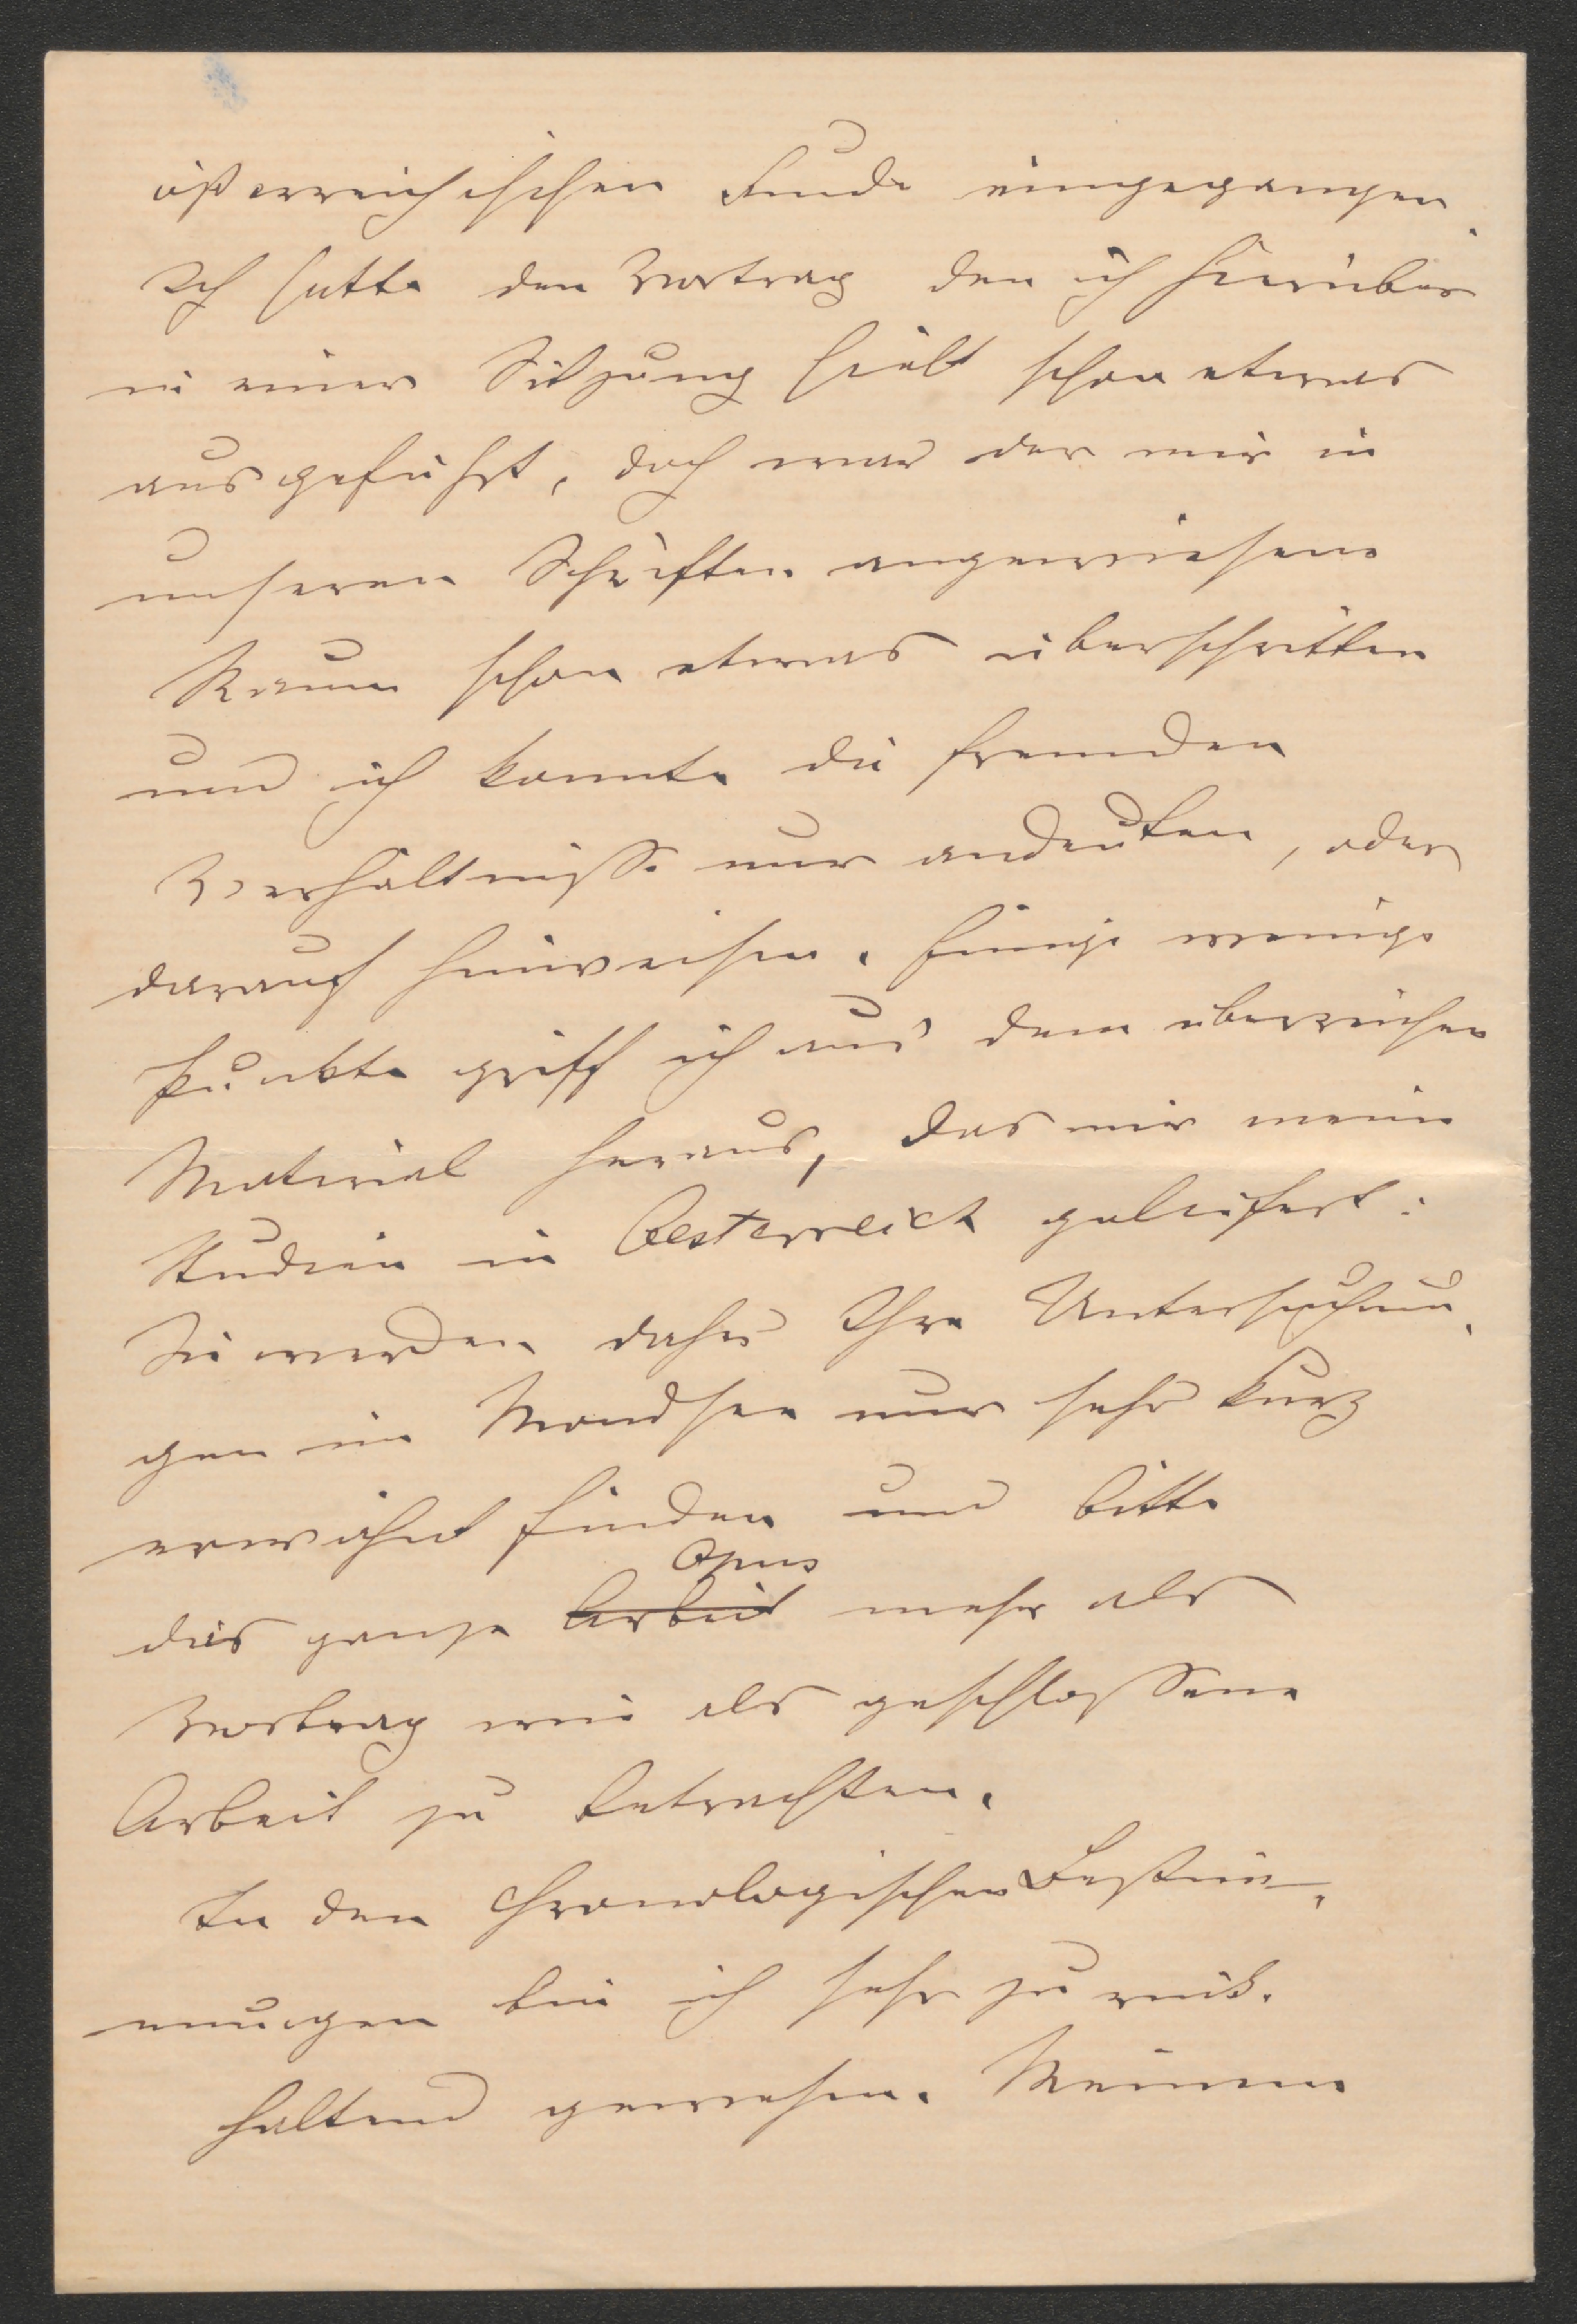 österreichischen Funde eingegangen.
Ich hatte den Vortrag den ich hierüber
in einer Sitzung hielt schon etwas
ausgeführt, doch war der mir in
unseren Schriften angewiesene
Raum schon etwas überschritten
und ich konnte die fremden
Verhältnisse nur andeuten, oder
darauf hinweisen. Einige wenige
Punkte griff ich aus dem überreichen
Material heraus, das mir meine
Studien in Oesterreich geliefert.
Sie werden daher Ihre Untersuchun-
gen im Mondsee nur sehr kurz
erwähnt finden und bitte
Opus
das ganze Arbeit mehr als
Vortrag wie als geschlossene
Arbeit zu betrachten.
In den chronologischen Bestim-
mungen bin ich sehr zurück-
haltend gewesen. Meinem